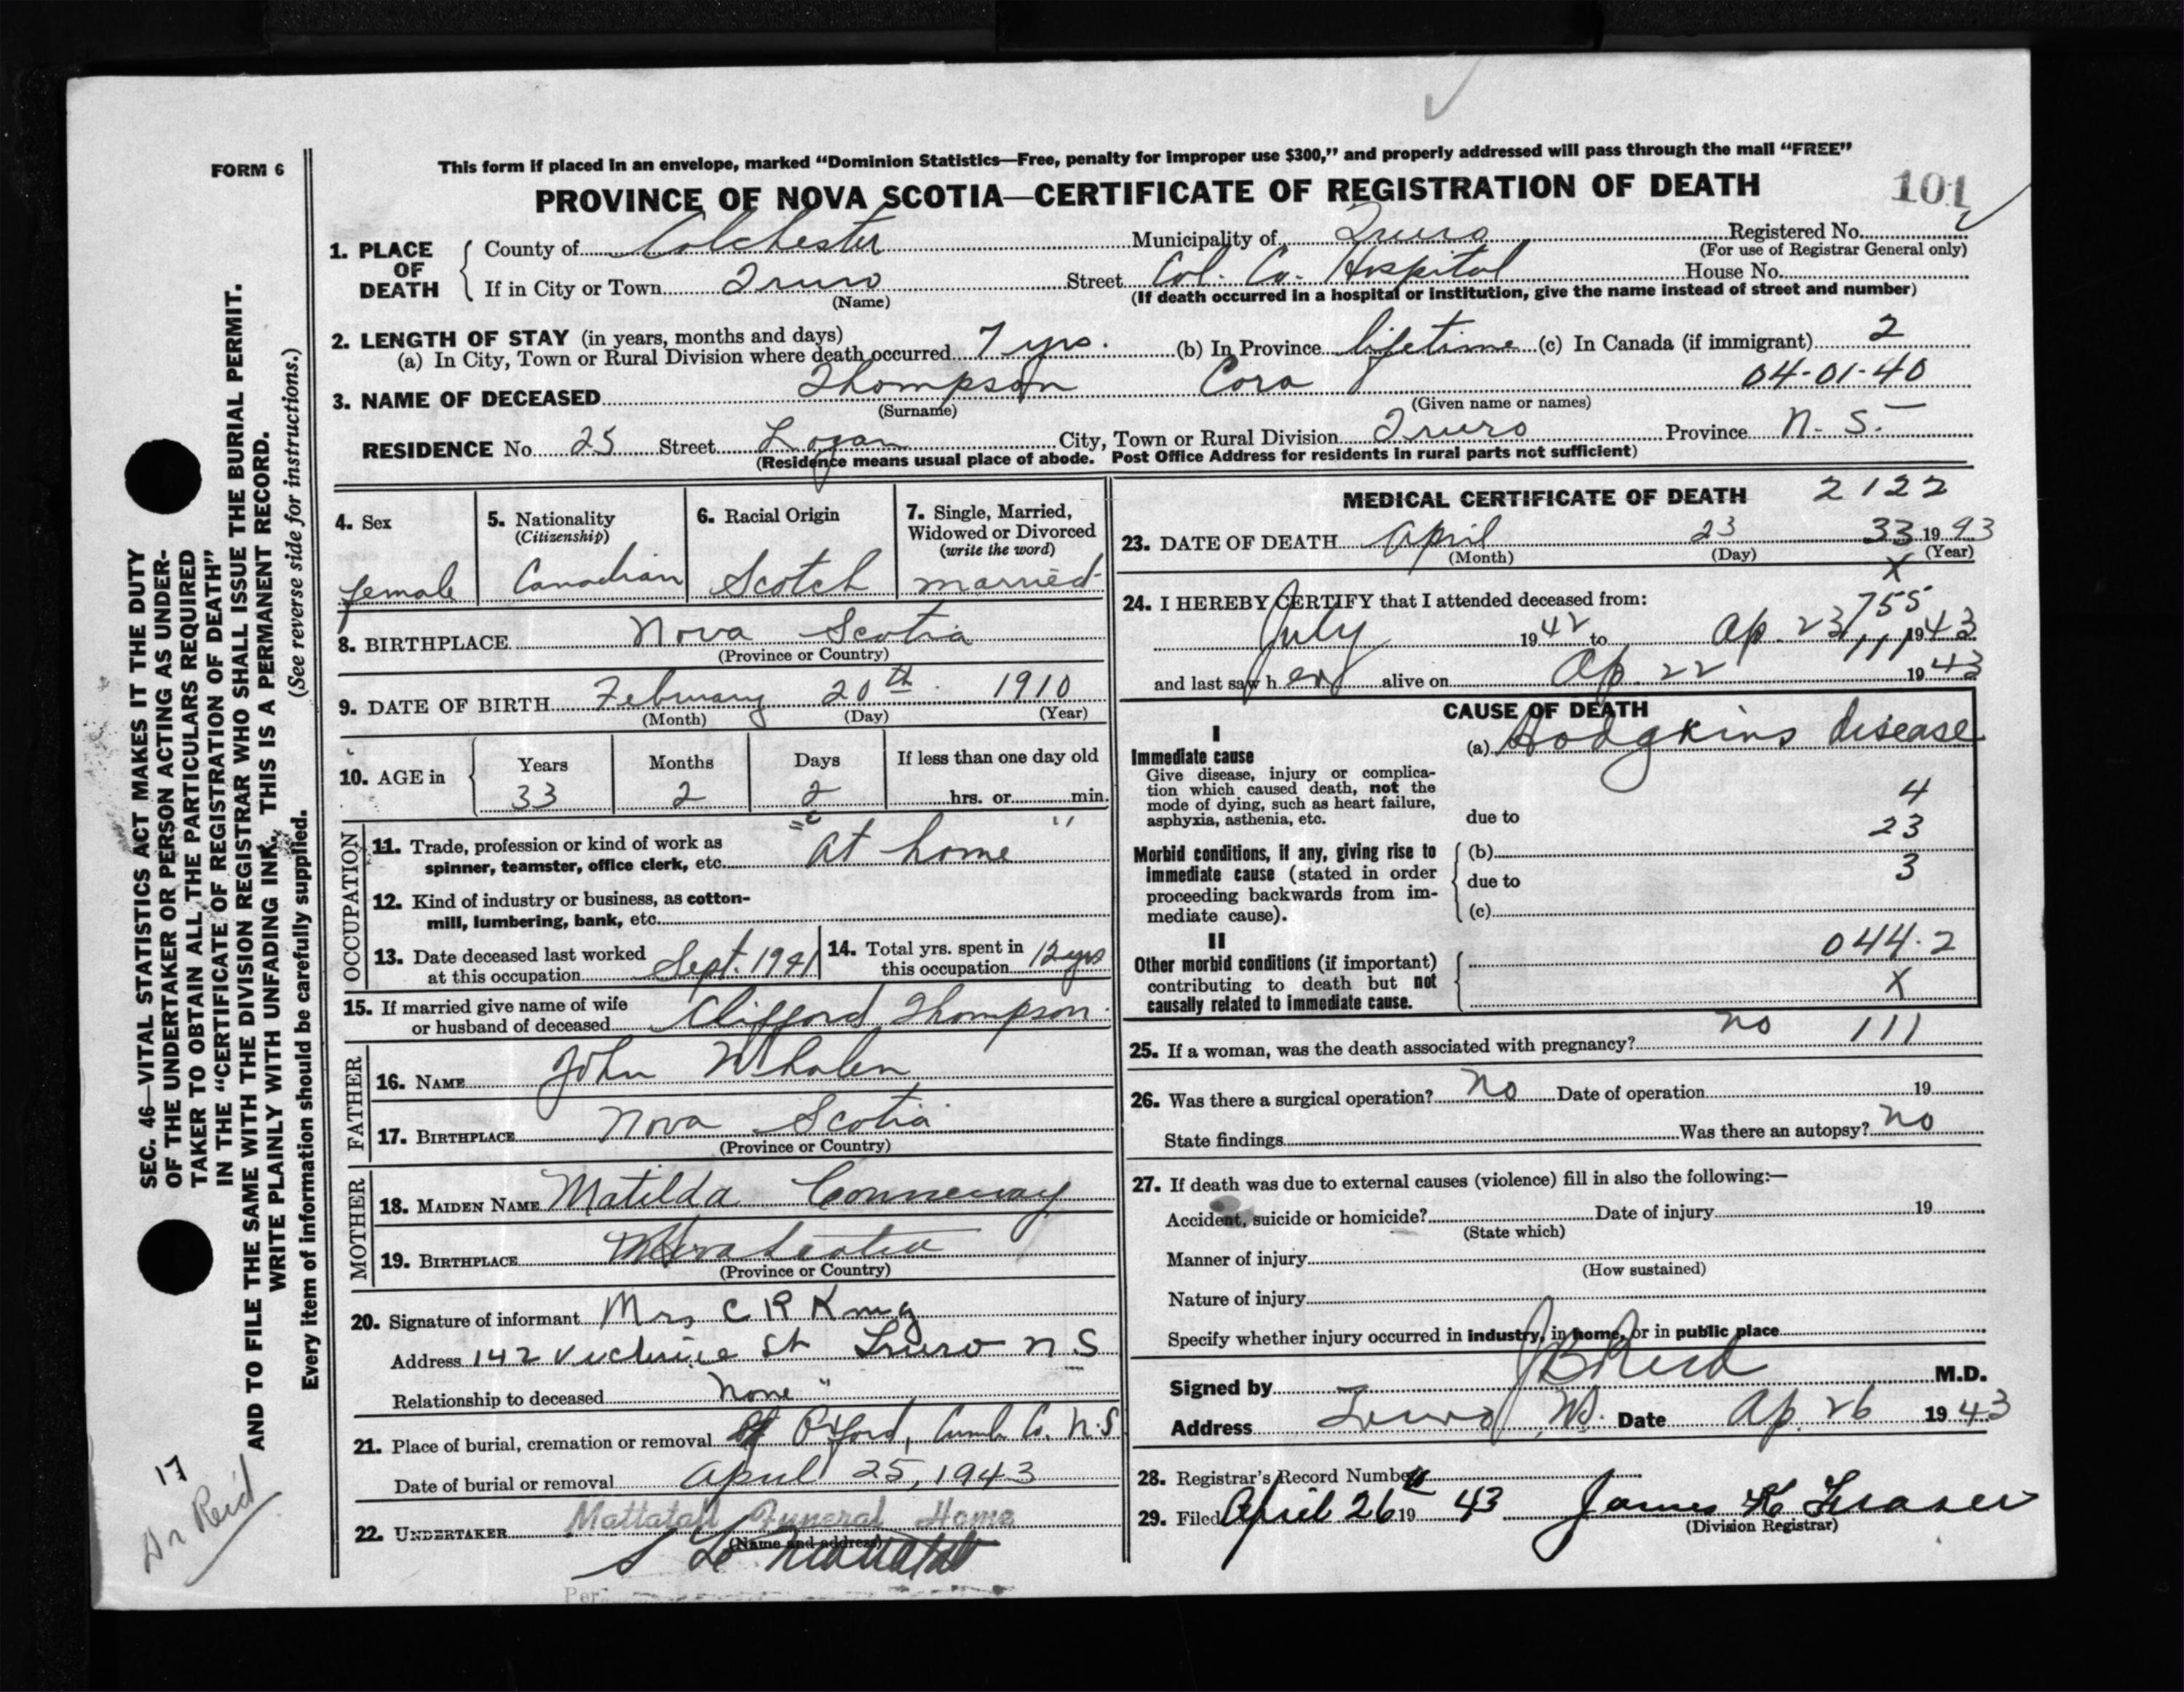 FORM 6
This form if placed in an envelope, marked “Dominion Statistics—Free, penalty for improper use $300,” and properly addressed will pass through the mail “FREE”
PROVINCE OF NOVA SCOTIA—CERTIFICATE OF REGISTRATION OF DEATH
101
1. PLACE OF DEATH
County of Colchester Municipality of Truro Registered No.
(For use of Registrar General only)
If in City or Town Truro Street Col. Co. Hospital House No.
(Name) (If death occurred in a hospital or institution, give the name instead of street and number)
2. LENGTH OF STAY (in years, months and days)
(a) In City, Town or Rural Division where death occurred 7 yrs. (b) In Province lifetime (c) In Canada (if immigrant) 2
04-01-40
3. NAME OF DECEASED Thompson Cora
(Surname) (Given name or names)
RESIDENCE No. 25 Street Logan City, Town or Rural Division Truro Province N. S.
(Residence means usual place of abode. Post Office Address for residents in rural parts not sufficient)
4. Sex
female
5. Nationality
(Citizenship)
Canadian
6. Racial Origin
Scotch
7. Single, Married,
Widowed or Divorced
(write the word)
married
8. BIRTHPLACE Nova Scotia
(Province or Country)
9. DATE OF BIRTH February 20th 1910
(Month) (Day) (Year)
10. AGE in
Years Months Days If less than one day old
33 2 2 hrs. or min.
OCCUPATION
11. Trade, profession or kind of work as
spinner, teamster, office clerk, etc. "at home"
12. Kind of industry or business, as cotton-
mill, lumbering, bank, etc.
13. Date deceased last worked
at this occupation Sept. 1941
14. Total yrs. spent in
this occupation 12 yrs
15. If married give name of wife
or husband of deceased Clifford Thompson
FATHER
16. NAME John Whalen
17. BIRTHPLACE Nova Scotia
(Province or Country)
MOTHER
18. MAIDEN NAME Matilda Conneway
19. BIRTHPLACE Nova Scotia
(Province or Country)
20. Signature of informant Mrs C R King
Address 142 Victoria St Truro N S
Relationship to deceased None
21. Place of burial, cremation or removal Oxford, Cumb. Co. N.S
Date of burial or removal April 25, 1943
22. UNDERTAKER Mattatall Funeral Home
(Name and address)
Per
MEDICAL CERTIFICATE OF DEATH 2122
23. DATE OF DEATH April 23 33 1943
(Month) (Day) (Year)
X
24. I HEREBY CERTIFY that I attended deceased from:
755
July 1942 to Ap. 23 1943
111
and last saw her alive on Ap 22 1943
CAUSE OF DEATH
I
Immediate cause
Give disease, injury or complica-
tion which caused death, not the
mode of dying, such as heart failure,
asphyxia, asthenia, etc.
(a) Hodgkins disease
4
due to
23
Morbid conditions, if any, giving rise to
immediate cause (stated in order
proceeding backwards from im-
mediate cause).
(b)
due to
3
(c)
II
Other morbid conditions (if important)
contributing to death but not
causally related to immediate cause.
044.2
X
25. If a woman, was the death associated with pregnancy? no 111
26. Was there a surgical operation? No Date of operation 19
State findings Was there an autopsy? No
27. If death was due to external causes (violence) fill in also the following:—
Accident, suicide or homicide? Date of injury 19
(State which)
Manner of injury
(How sustained)
Nature of injury
Specify whether injury occurred in industry, in home, or in public place
Signed by J B Reid M.D.
Address Truro NS. Date Ap. 26 1943
28. Registrar's Record Number
29. Filed April 26 19 43 James K Fraser
(Division Registrar)
SEC. 46—VITAL STATISTICS ACT MAKES IT THE DUTY
OF THE UNDERTAKER OR PERSON ACTING AS UNDER-
TAKER TO OBTAIN ALL THE PARTICULARS REQUIRED
IN THE “CERTIFICATE OF REGISTRATION OF DEATH”
AND TO FILE THE SAME WITH THE DIVISION REGISTRAR WHO SHALL ISSUE THE BURIAL PERMIT.
WRITE PLAINLY WITH UNFADING INK. THIS IS A PERMANENT RECORD.
Every item of information should be carefully supplied. (See reverse side for instructions.)
17
Dr Reid